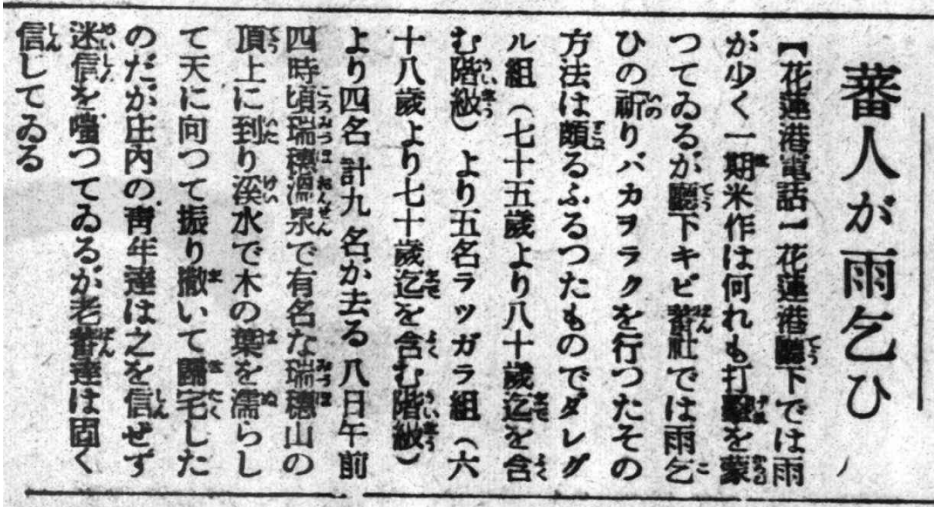 蕃人が雨乞ひ
【花蓮港電話】花蓮港廳下では雨
が少く一期米作は何れも打擊を蒙
つてゐるが廳下キビ蕃社では雨乞
ひの祈りバカヲラクを行つたその
方法は頗るふるつたものでダレグ
ル組（七十五歲より八十歲迄を含
む階級）より五名ラツガラ組（六
十八歲より七十歲迄を含む階級）
より四名計九名が去る八日午前
四時頃瑞穗溫泉で有名な瑞穗山の
頂上に到り溪水で木の葉を濡らし
て天に向つて振り撒いて歸宅した
のだが庄內の靑年達は之を信ぜず
迷信を嗤つてゐるが老蕃達は固く
信してゐる